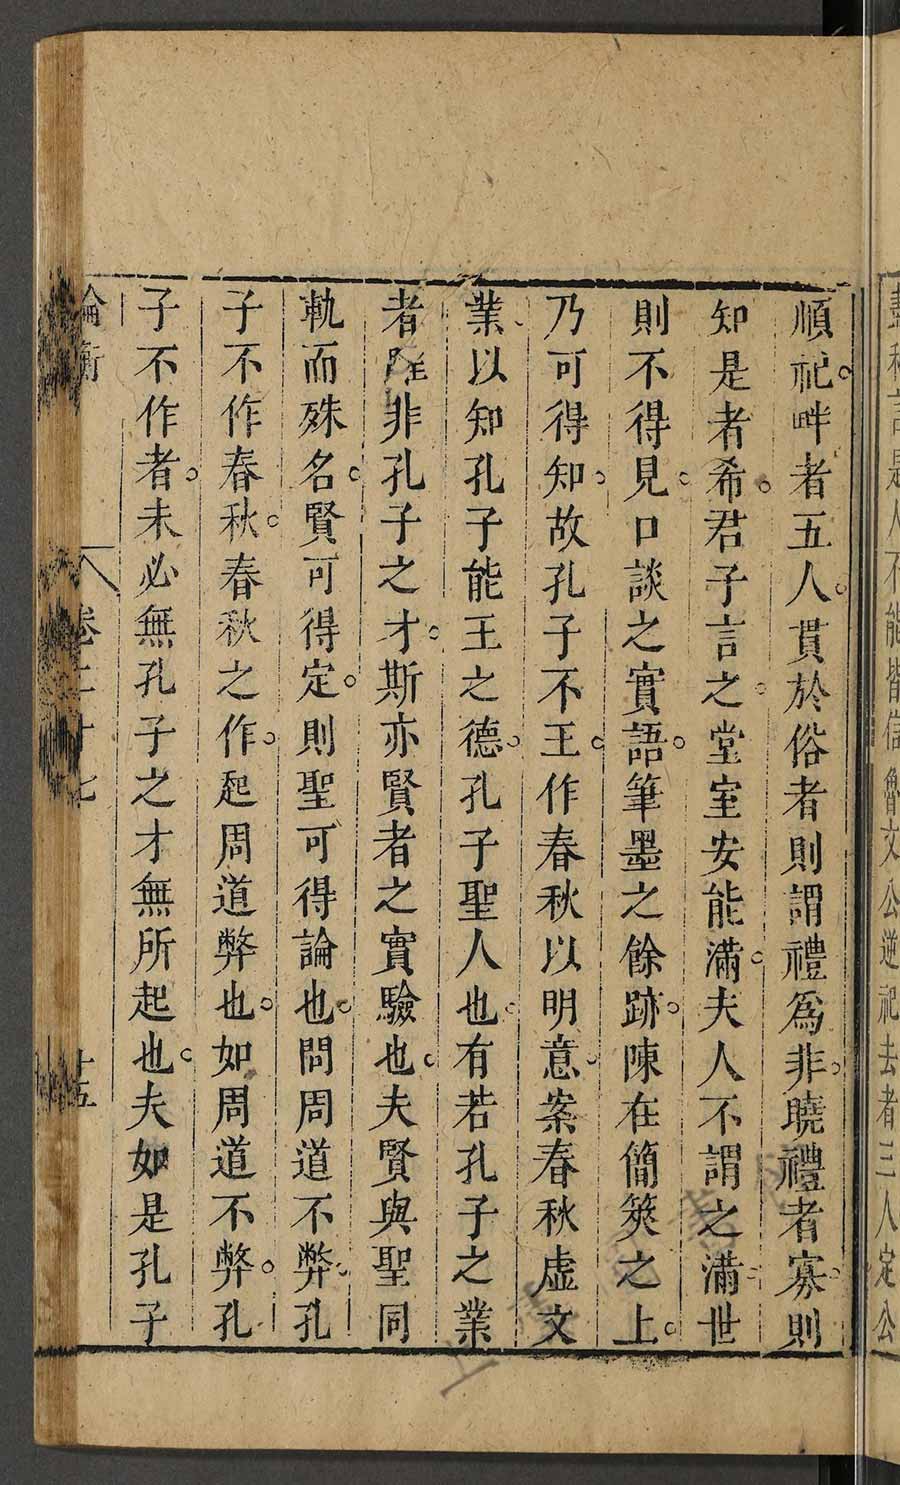 盡和言是人不能皆信魯文公逆祀去者三人定公
順祀畔者五人貫於俗者則謂禮爲非曉禮者寡則
知是者希君子言之堂室安能滿夫人不謂之滿世
則不得見口談之實語筆墨之餘跡陳在簡筴之上
乃可得知故孔子不王作春秋以明意案春秋虛文
業以知孔子能王之德孔子聖人也有若孔子之業
者雖非孔子之才斯亦賢者之實驗也夫賢與聖同
軌而殊名賢可得定則聖可得論也問周道不弊孔
子不作春秋春秋之作起周道弊也如周道不弊孔
子不作者未必無孔子之才無所起也夫如是孔子
論衡 卷二十七 十五